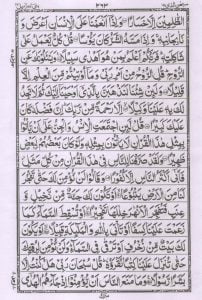 ۲۶۳
الظّٰلِمِيْنَ اِلَّا خَسَارًا ۝ وَاِذَاۤ اَنْعَمْنَا عَلَى الْاِنْسَانِ اَعْرَضَ وَ
نَاٰ بِجَانِبِهٖ ۚ وَاِذَا مَسَّهُ الشَّرُّ كَانَ يَـُٔوْسًا ۝ قُلْ كُلٌّ يَّعْمَلُ عَلٰى
شَاكِلَتِهٖ ؕ فَرَبُّكُمْ اَعْلَمُ بِمَنْ هُوَ اَهْدٰى سَبِيْلًا ۝ وَيَسْـَٔلُوْنَكَ عَنِ
الرُّوْحِ ؕ قُلِ الرُّوْحُ مِنْ اَمْرِ رَبِّيْ وَمَاۤ اُوْتِيْتُمْ مِّنَ الْعِلْمِ اِلَّا
قَلِيْلًا ۝ وَلَئِنْ شِئْنَا لَنَذْهَبَنَّ بِالَّذِيْۤ اَوْحَيْنَاۤ اِلَيْكَ ثُمَّ لَا تَجِدُ
لَكَ بِهٖ عَلَيْنَا وَكِيْلًا ۝ اِلَّا رَحْمَةً مِّنْ رَّبِّكَ ؕ اِنَّ فَضْلَهٗ كَانَ
عَلَيْكَ كَبِيْرًا ۝ قُلْ لَّئِنِ اجْتَمَعَتِ الْاِنْسُ وَالْجِنُّ عَلٰۤى اَنْ يَّاْتُوْا
بِمِثْلِ هٰذَا الْقُرْاٰنِ لَا يَاْتُوْنَ بِمِثْلِهٖ وَلَوْ كَانَ بَعْضُهُمْ لِبَعْضٍ
ظَهِيْرًا ۝ وَلَقَدْ صَرَّفْنَا لِلنَّاسِ فِيْ هٰذَا الْقُرْاٰنِ مِنْ كُلِّ مَثَلٍ
فَاَبٰۤى اَكْثَرُ النَّاسِ اِلَّا كُفُوْرًا ۝ وَقَالُوْا لَنْ نُّؤْمِنَ لَكَ حَتّٰى تَفْجُرَ لَنَا
مِنَ الْاَرْضِ يَنْۢبُوْعًا ۝ اَوْ تَكُوْنَ لَكَ جَنَّةٌ مِّنْ نَّخِيْلٍ وَّ
عِنَبٍ فَتُفَجِّرَ الْاَنْهٰرَ خِلٰلَهَا تَفْجِيْرًا ۝ اَوْ تُسْقِطَ السَّمَآءَ كَمَا
زَعَمْتَ عَلَيْنَا كِسَفًا اَوْ تَاْتِيَ بِاللّٰهِ وَالْمَلٰٓئِكَةِ قَبِيْلًا ۝ اَوْ يَكُوْنَ
لَكَ بَيْتٌ مِّنْ زُخْرُفٍ اَوْ تَرْقٰى فِي السَّمَآءِ ؕ وَلَنْ نُّؤْمِنَ لِرُقِيِّكَ
حَتّٰى تُنَزِّلَ عَلَيْنَا كِتٰبًا نَّقْرَؤُهٗ ؕ قُلْ سُبْحَانَ رَبِّيْ هَلْ كُنْتُ اِلَّا
بَشَرًا رَّسُوْلًا ۝ وَمَا مَنَعَ النَّاسَ اَنْ يُّؤْمِنُوْۤا اِذْ جَآءَهُمُ الْهُدٰۤى